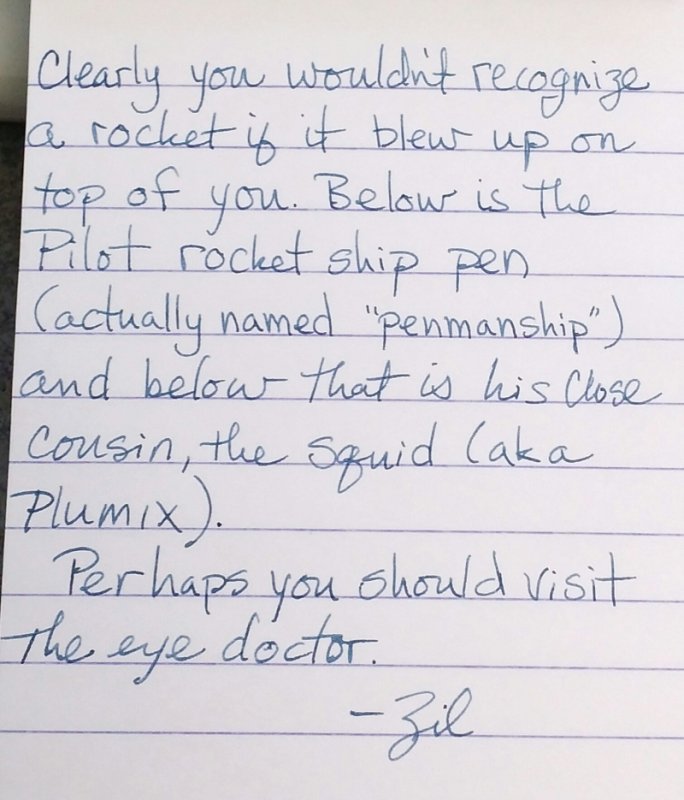 Clearly you wouldn't recognize
a rocket if it blew up on
top of you. Below is the
Pilot rocket ship pen
(actually named "penmanship")
and below that is his close
cousin, the squid (aka
Plumix).
Perhaps you should visit
the eye doctor.
- Zil